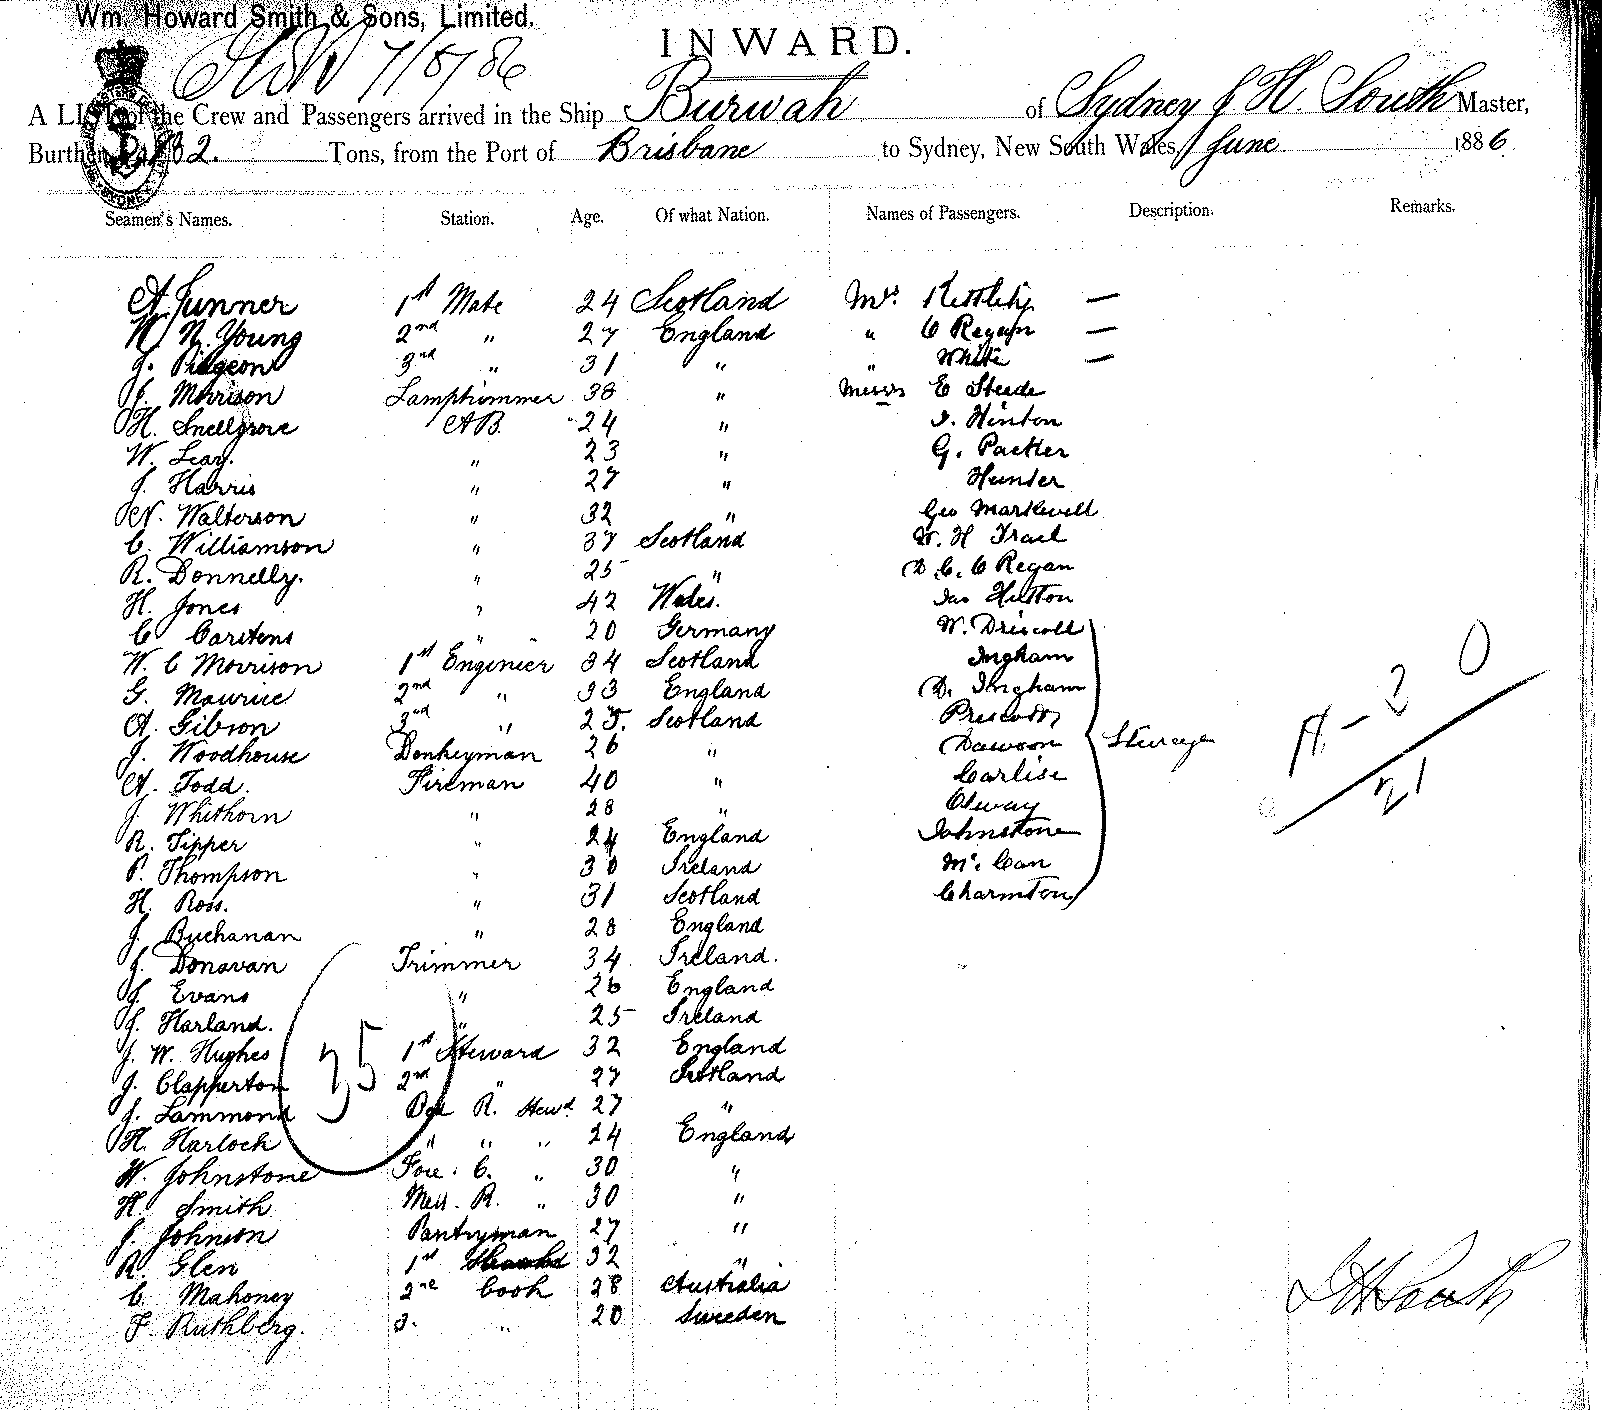 Wm Howard Smith & Sons, Limited.
INWARD.
7/6/86
A LIST of the Crew and Passengers arrived in the Ship Burwah of Sydney J H. South Master,
Burthen 832. Tons, from the Port of Brisbane to Sydney, New South Wales, 1 June 1886
Seamen's Names. Station. Age. Of what Nation. Names of Passengers. Description. Remarks.
A Junner 1st Mate 24 Scotland Mrs —
W. N. Young 2nd " 27 England " O Regan —
J. Pidgeon 3rd " 31 " " White —
J. Morrison Lamptrimmer 38 " Messrs E Steede
H. Snellgrove AB. 24 " J. Hinton
W. Leay. " 23 " G. Packer
J. Harris " 27 " Hunter
W. Walterson " 32 " Geo Markwell
C. Williamson " 37 Scotland W. H Trail
R. Donnelly. " 25 " D. C. O Regan
H. Jones " 42 Wales. Jas Hutton
C Carstens " " 20 Germany W. Driscoll
W. C Morrison 1st Engineer 34 Scotland Ingham
G. Maurice 2nd " 33 England D. Ingham
A. Gibson 3rd " 25. Scotland Prescott
J. Woodhouse Donkeyman 26 " Dawson Steerage
A. Todd. Fireman 40 " Carlise
J. Whithorn " 28 " Elway
R. Tipper " 24 England Johnstone
P. Thompson " 30 Ireland Mc. Can
H. Ross. " 31 Scotland Charmton
J. Buchanan " 28 England
J. Donavan Trimmer 34 Ireland.
J. Evans " 26 England
J. Harland. " 25 Ireland
J. W. Hughes 1st Steward 32 England
J. Clapperton 2nd " 27 Scotland
J. Lammond R. Stewd 27 "
H. Harlock " " " 24 England
W. Johnstone Fore. C. " 30 "
H. Smith Mess. R. " 30 "
J. Johnson Pantryman 27 "
R. Glen 1st 32 "
C. Mahoney 2nd Cook 28 Australia
F. Ruthberg. 3. " 20 Sweden
35
A - 20
21
J H South